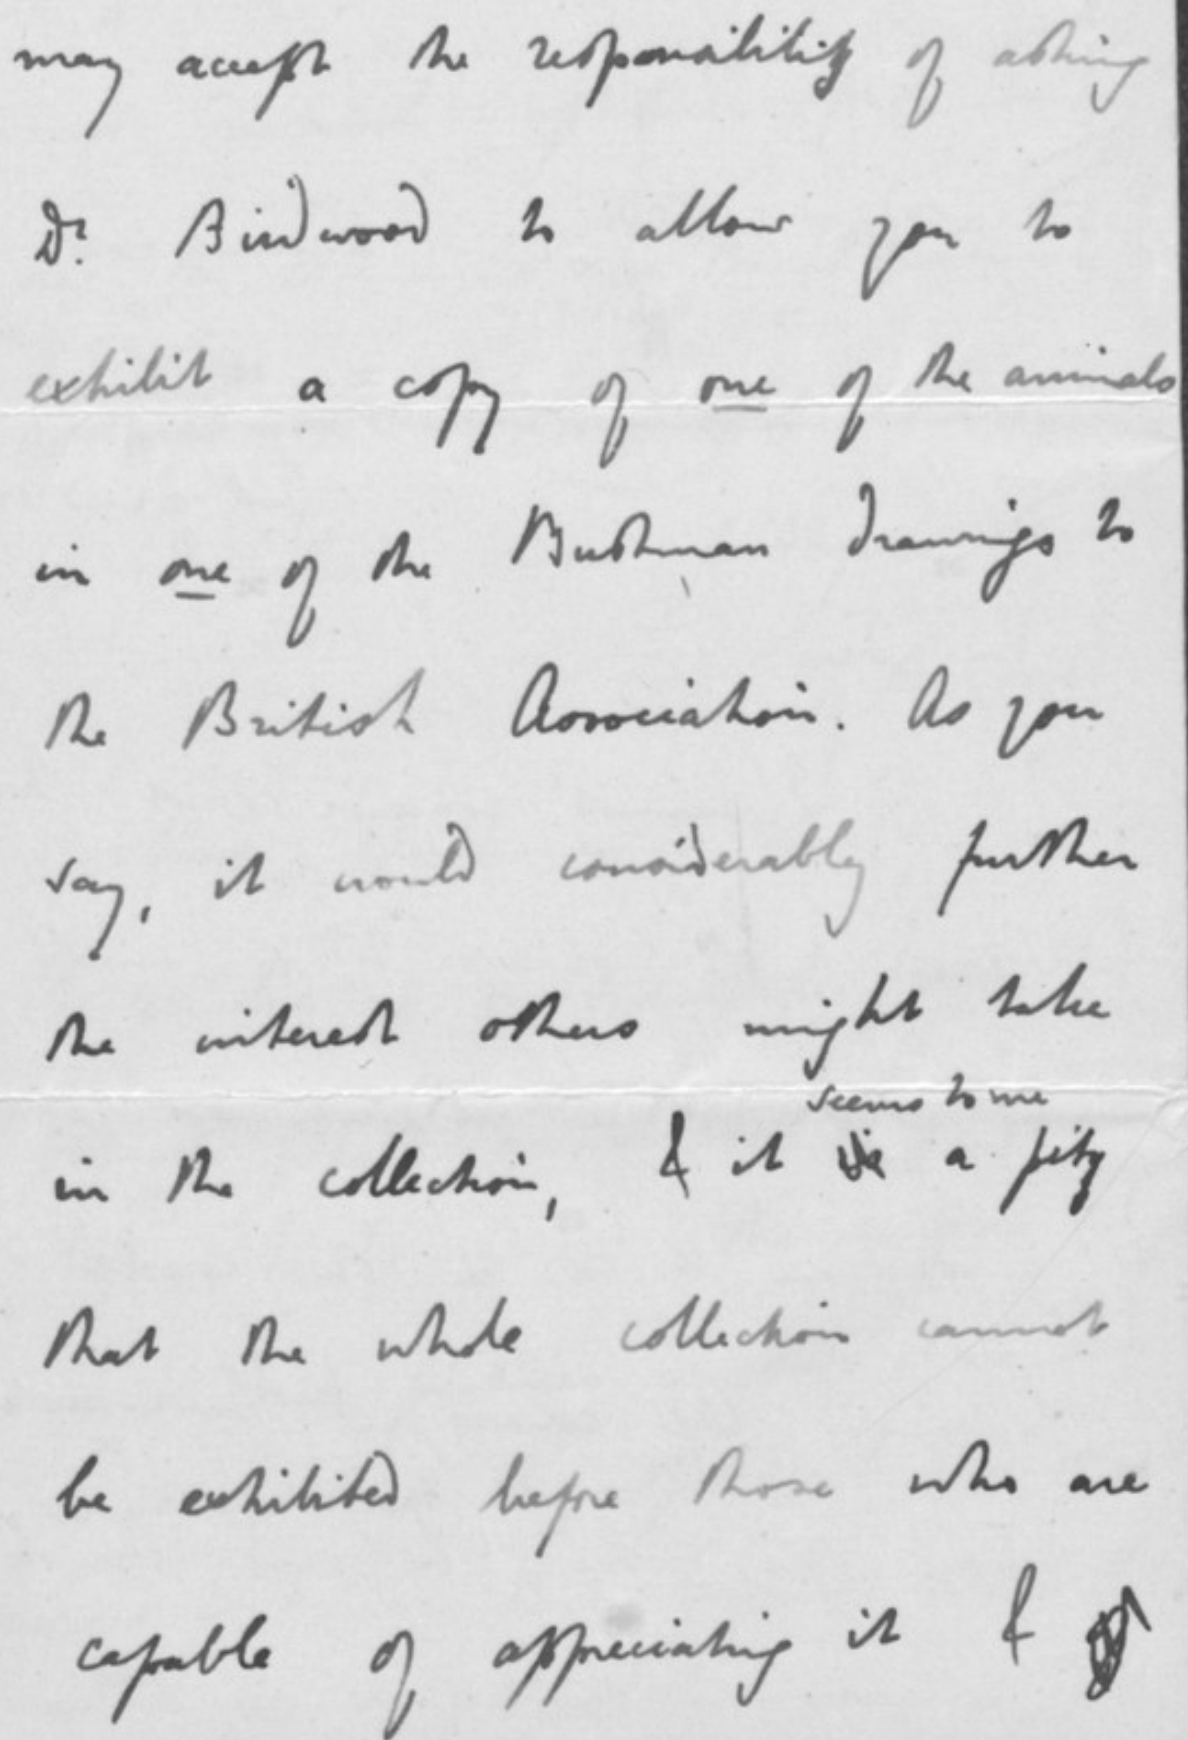 may accept the responsibility of asking
Dr. Birdwood to allow you to
exhibit a copy of one of the animals
in one of the Bushman drawings to
the British Association. As you
say, it would considerably further
the interest others might take
seems to me
in the collection, & it is a pity
that the whole collection cannot
be exhibited before those who are
capable of appreciating it &